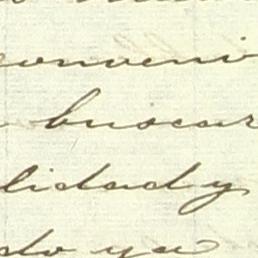 conveni
buscar
lidad y
do ya